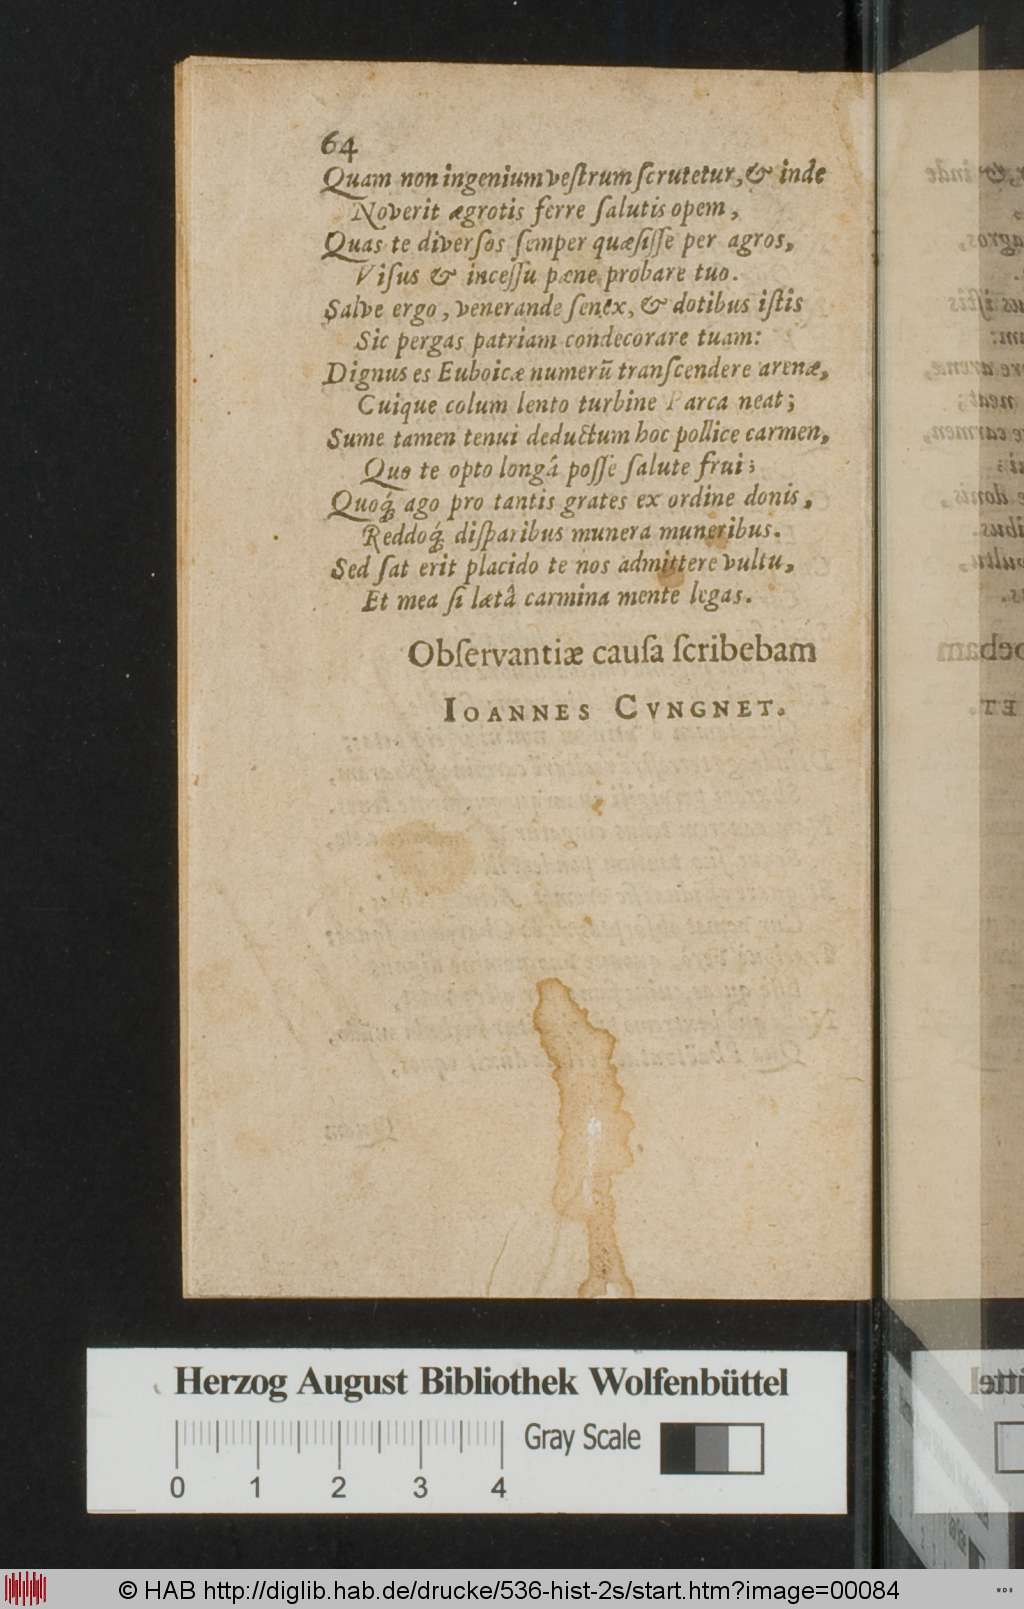 64
Quam non ingenium veſtrum ſcrutetur, & inde
Noverit ægrotis ferre ſalutis opem,
Quas te diverſos ſemper quæſiſſe per agros,
Viſus & inceſſu pæne probare tuo.
Salve ergo, venerande ſenex, & dotibus iſtis
Sic pergas patriam condecorare tuam:
Dignus es Euboicæ numerũ tranſcendere arenæ,
Cuique colum lento turbine Parca neat;
Sume tamen tenui deductum hoc pollice carmen,
Quo te opto longâ poſſe ſalute frui;
Quoq́; ago pro tantis grates ex ordine donis,
Reddoq́; diſparibus munera muneribus.
Sed ſat erit placido te nos admittere vultu,
Et mea ſi lætâ carmina mente legas.
Obſervantiæ cauſa ſcribebam
IOANNES CVNGNET.
Herzog August Bibliothek Wolfenbüttel
Gray Scale
0 1 2 3 4
© HAB http://diglib.hab.de/drucke/536-hist-2s/start.htm?image=00084